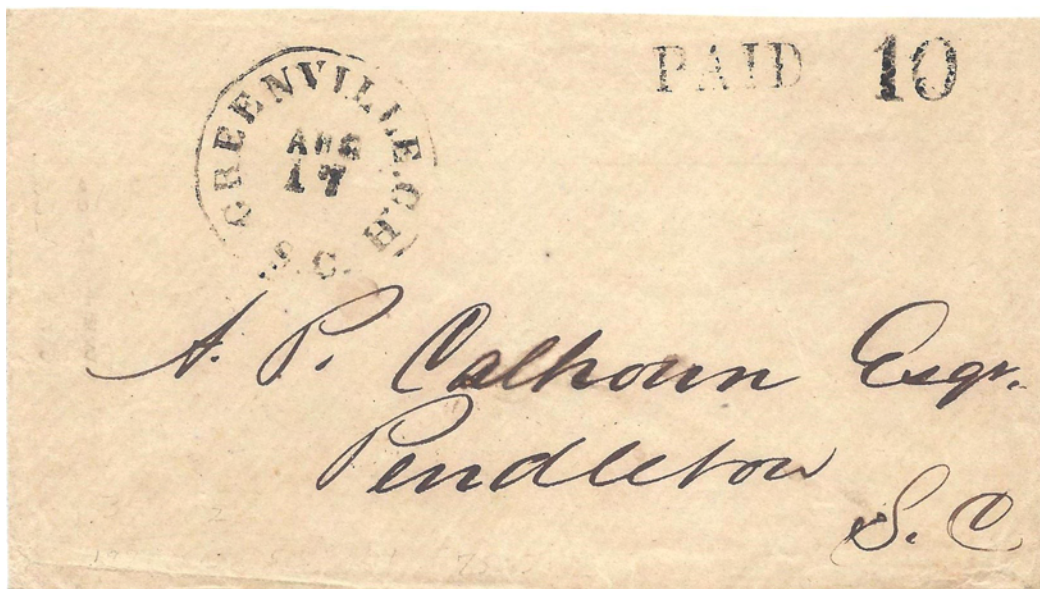 GREENVILLE.C.H
S.C.
AUG
17
PAID 10
A. P. Calhoun Esqr.
Pendleton
S. C